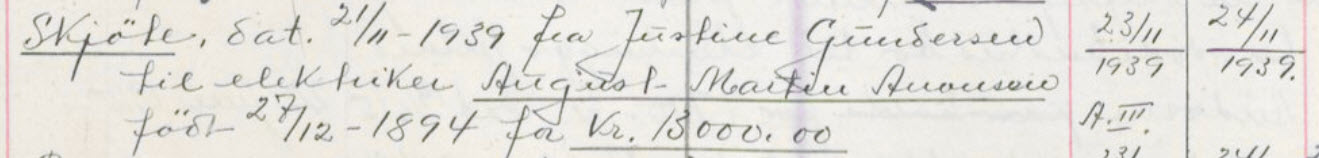 Skjöte, dat. 21/11-1939 fra Justine Gundersen 23/11 1939 24/11 1939.
til elektriker August Martin Aronsen
födt 27/12-1894 for Kr. 13000.00 A.III.